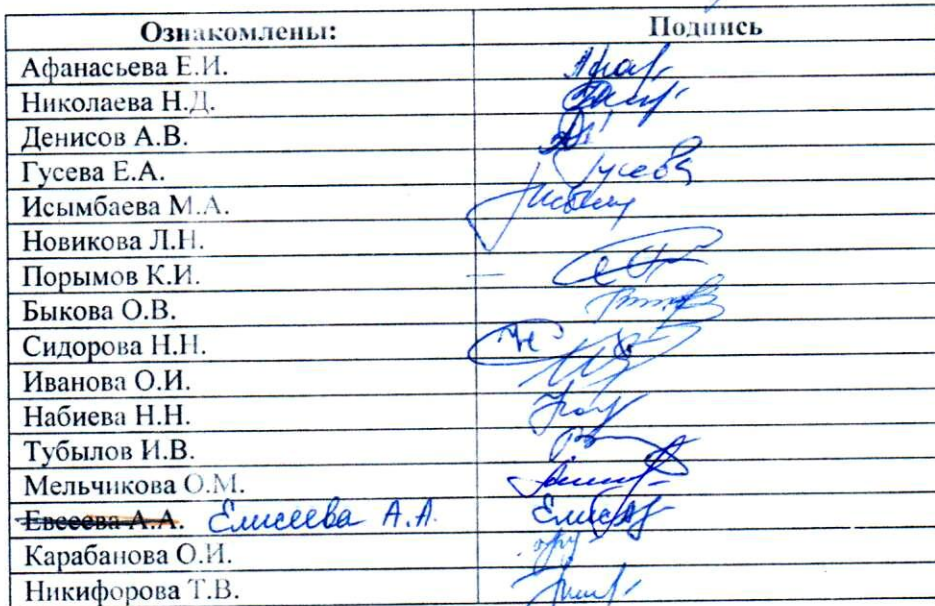 Ознакомлены: Подпись
Афанасьева Е.И.
Николаева Н.Д.
Денисов А.В.
Гусева Е.А. Гусева
Исымбаева М.А.
Новикова Л.Н.
Порымов К.И. —
Быкова О.В.
Сидорова Н.Н.
Иванова О.И.
Набиева Н.Н.
Тубылов И.В.
Мельчикова О.М.
Евсеева А.А. Елисеева А.А.
Карабанова О.И.
Никифорова Т.В.